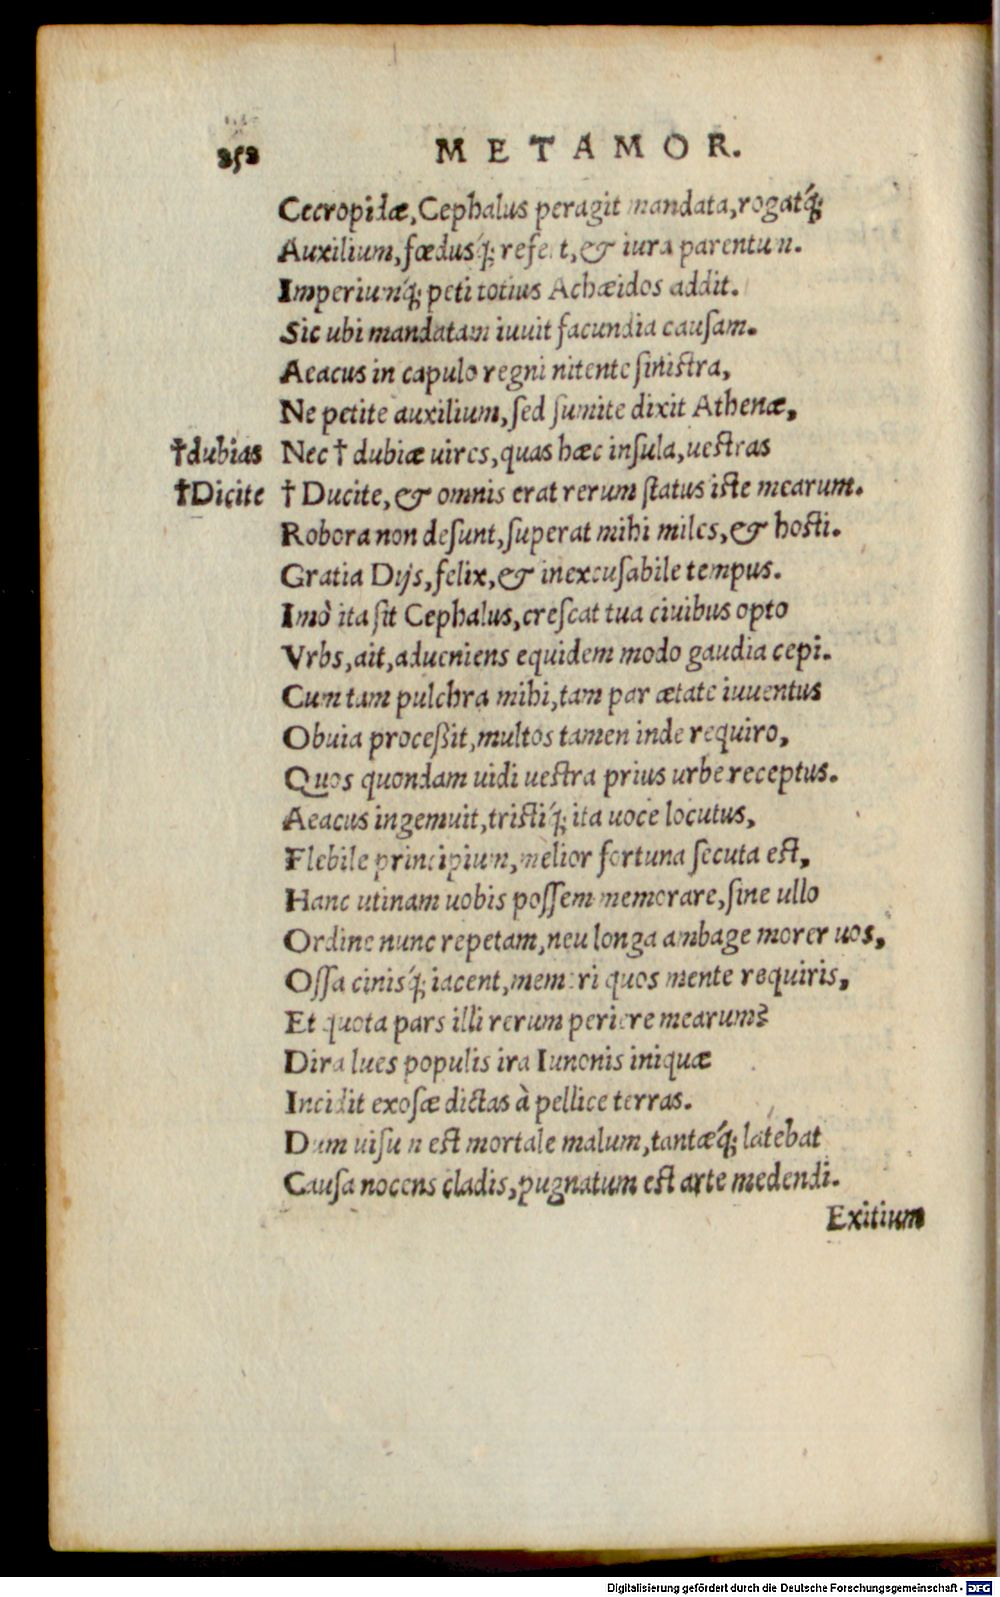 252 METAMOR.
Cecropidæ,Cephalus peragit mandata,rogatq́;
Auxilium,fœdusq́; refert,& iura parentum.
Imperiumq́; peti totius Achæidos addit.
Sic ubi mandatam iuuit facundia causam.
Aeacus in capulo regni nitente sinistra,
Ne petite auxilium,sed sumite dixit Athenæ,
†dubias Nec † dubiæ uires,quas hæc insula,uestras
†Dicite † Ducite,& omnis erat rerum status iste mearum.
Robora non desunt,superat mihi miles,& hosti.
Gratia Dijs,felix,& inexcusabile tempus.
Imò ita sit Cephalus,crescat tua ciuibus opto
Vrbs,ait,adueniens equidem modo gaudia cepi.
Cum tam pulchra mihi,tam par ætate iuuentus
Obuia proceßit,multos tamen inde requiro,
Quos quondam uidi uestra prius urbe receptus.
Aeacus ingemuit,tristiq́; ita uoce locutus,
Flebile principium,melior fortuna secuta est,
Hanc utinam uobis possem memorare,sine ullo
Ordine nunc repetam,neu longa ambage morer uos,
Ossa cinisq́; iacent,memori quos mente requiris,
Et quota pars illi rerum periere mearum?
Dira lues populis ira Iunonis iniquæ
Incidit exosæ dictas à pellice terras.
Dum uisum est mortale malum,tantæq́; latebat
Causa nocens cladis,pugnatum est arte medendi.
Exitium
Digitalisierung gefördert durch die Deutsche Forschungsgemeinschaft - DFG